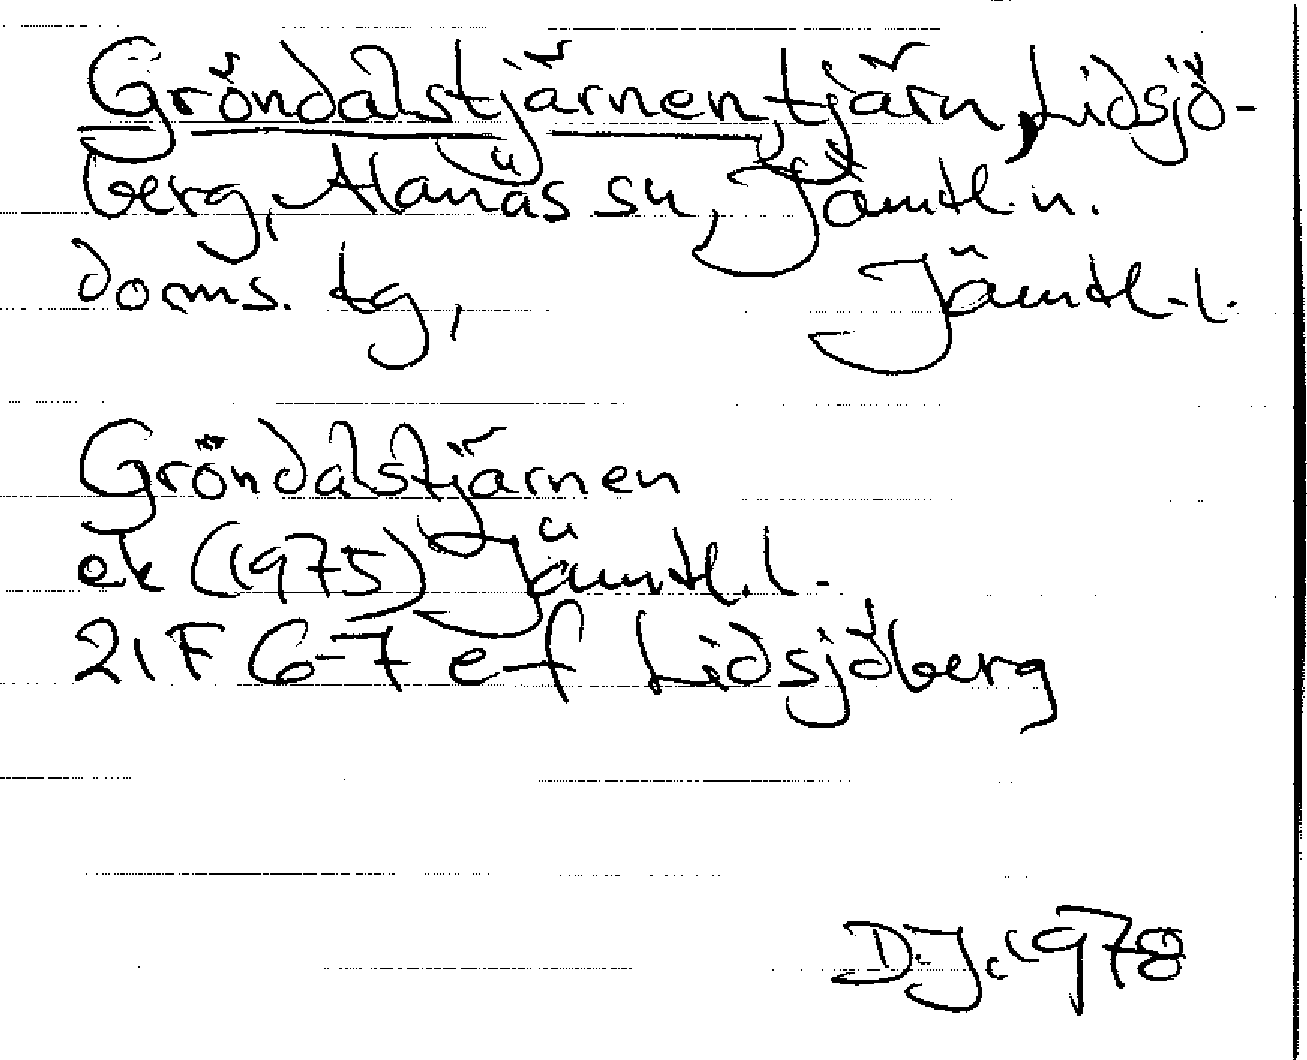 Gröndalstjärnen, tjärn, Lidsjö-
berg, Alanäs sn, Jämtl. n.
doms. tg, Jämtl. l.
Gröndalstjärnen
ek (1975) Jämtl. l.
21F 6-7 e-f Lidsjöberg
D.J. 1978